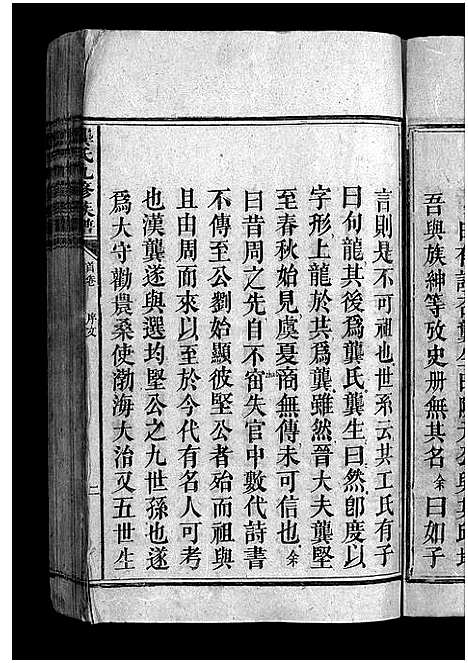 吾與族紳等攷史册無其名余曰如子
言則是不可祖也世系云共工氏有子
曰句龍其後爲龔氏龔生曰然卽度
字形上龍於共爲龔雖然晉大夫龔堅
至春秋始見虞夏商無傳未可信也余
曰昔周之先自不窋失官中數代詩書
不傳至公劉始顯彼堅公者殆而祖與
且由周而來以至於今代有名人可考
也漢龔遂與選均堅公之九世孫也遂
爲大守勸農桑使渤海大治又五世生
龔氏九修族譜
首卷 序文 二